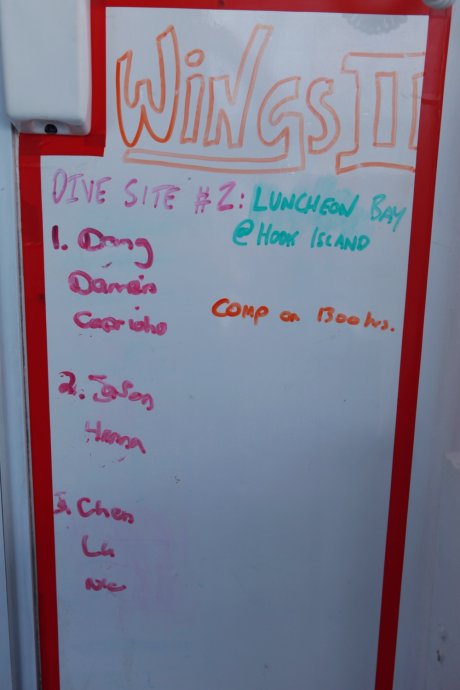 WiNGS II
DIVE SITE #2: LUNCHEON BAY
@ HOOK ISLAND
1. Dang
Damein
COMP on 1300 hrs.
2. Jason
Hanna
3. Chen
Lu